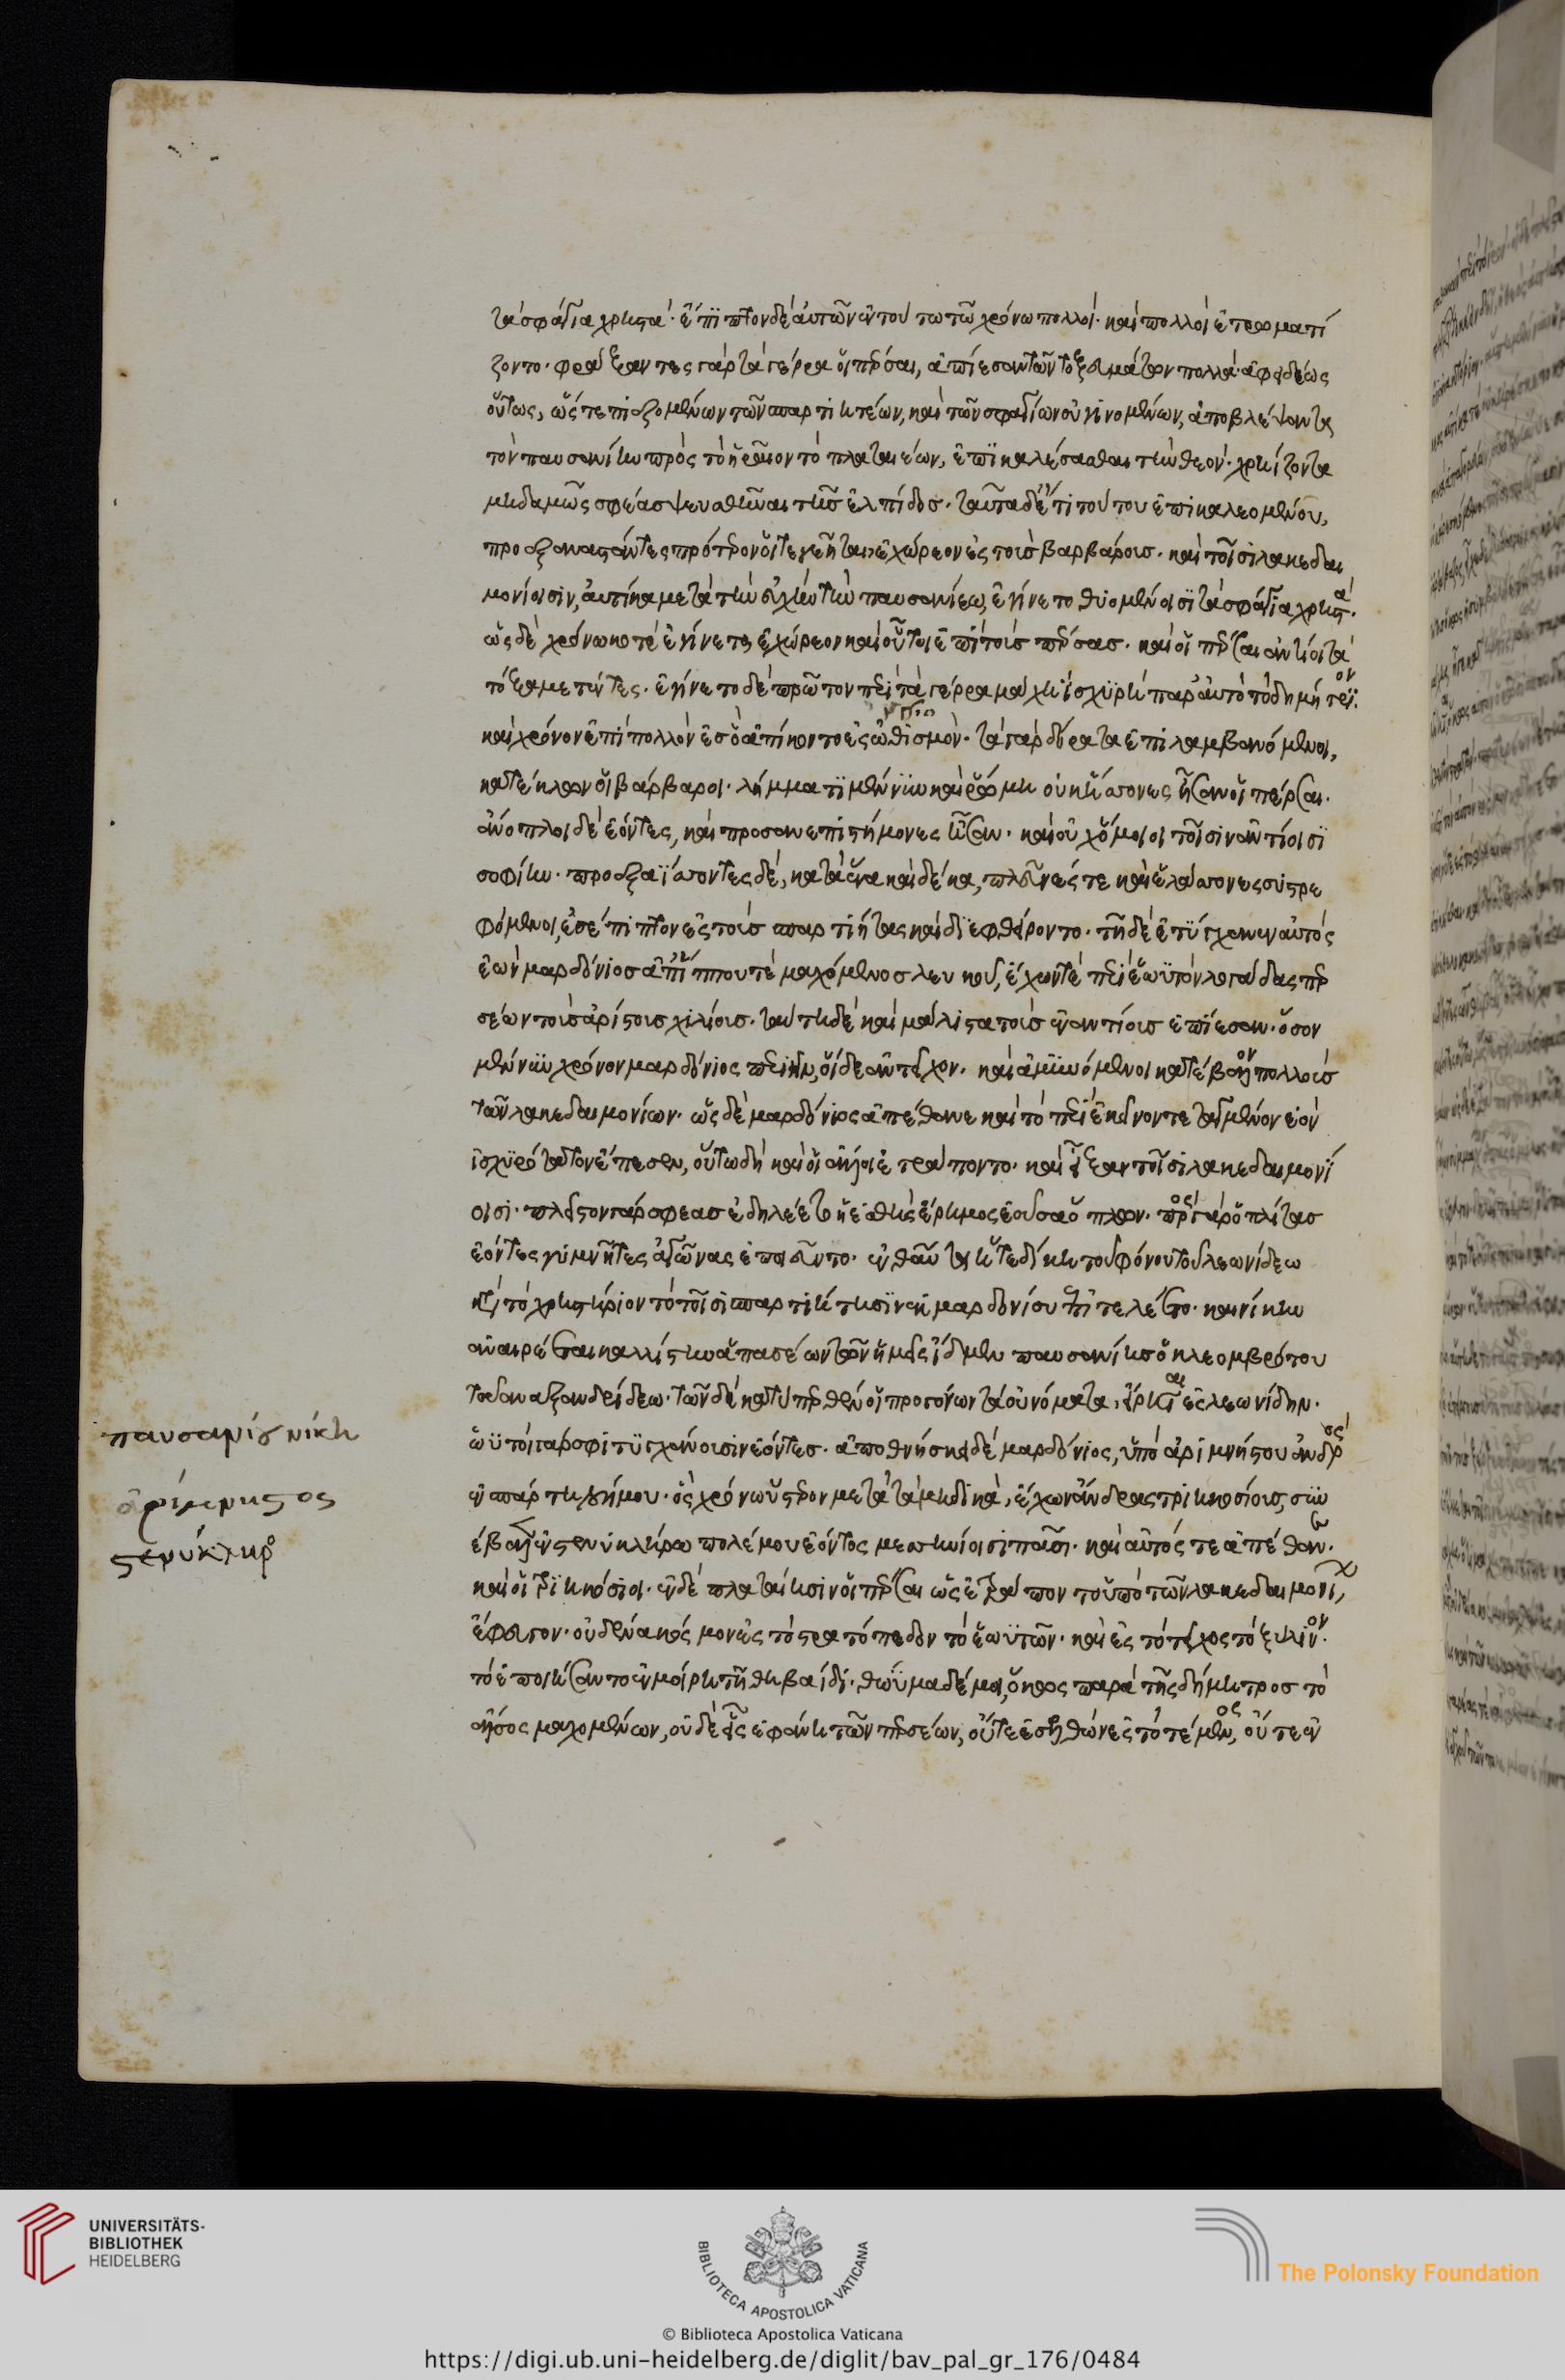 τὰ σφάγια χρηστά· ἔπιπτον δὲ αὐτῶν ἐν τούτω τῶ χρόνω πολλοί· καὶ πολλοὶ ἐτρωματί
ζοντο· φράξαντες γὰρ τὰ γέρρα οἱ πέρσαι, ἀπίεσαν τῶν τοξευμάτων πολλὰ ἀφειδέως
οὕτως, ὥστε πιεζομένων τῶν σπαρτιητέων, καὶ τῶν σφαγίων οὐ γινομένων, ἀποβλέψαντα
τὸν παυσανίην πρὸς τὸ ἥραιον τὸ πλαταιέων, ἐπικαλέσασθαι τὴν θεόν· χρηίζοντα
μηδαμῶς σφέας ψευσθῆναι τῆς ἐλπίδος· ταῦτα δ' ἔτι τούτου ἐπικαλεομένου,
προεξαναστάντες πρότερον οἱ τεγεῆται ἐχώρεον ἐς τοὺς βαρβάρους· καὶ τοῖσι λακεδαι
μονίοισιν, αὐτίκα μετὰ τὴν εὐχὴν τὴν παυσανίεω, ἐγίνετο θυομένοισι τὰ σφάγια χρηστά·
ὡς δὲ χρόνω κοτὲ ἐγίνετο, ἐχώρεον καὶ οὗτοι ἐπὶ τοὺς πέρσας· καὶ οἱ πέρσαι ἀντίοι τὰ
τόξα μετέντες· ἐγίνετο δὲ πρῶτον περὶ τὰ γέρρα μάχη ἰσχυρὴ παρ' αὐτὸ τὸ δημήτριον·
καὶ χρόνον ἐπὶ πολλὸν ἐς ὃ ἀπίκοντο ἐς ὠθισμόν· τὰ γὰρ δόρατα ἐπιλαμβανόμενοι,
κατέκλων οἱ βάρβαροι· λήμματι μέν νυν καὶ ῥώμη οὐκ ἥσσονες ἦσαν οἱ πέρσαι·
ἄνοπλοι δὲ ἐόντες, καὶ προσανεπιστήμονες ἦσαν· καὶ οὐχ ὅμοιοι τοῖσι ἐναντίοισι
σοφίην· προεξαΐσσοντες δὲ, κατὰ ἕνα καὶ δέκα, πλεῦνές τε καὶ ἐλάσσονες συστρε
φόμενοι, ἐσέπιπτον ἐς τοὺς σπαρτιήτας καὶ διεφθείροντο· τῆ δὲ ἐτύγχανεν αὐτὸς
ἐὼν μαρδόνιος ἀπ' ἵππου τὲ μαχόμενος λευκοῦ, ἔχων τὲ περὶ ἑωυτὸν λογάδας περ
σέων τοὺς ἀρίστους χιλίους· ταύτη δὲ καὶ μάλιστα τοὺς ἐναντίους ἐπίεσαν· ὅσον
μέν νυν χρόνον μαρδόνιος περιῆν, οἵδε ἀντεῖχον· καὶ ἀμυνόμενοι κατέβαλλον πολλοὺς
τῶν λακεδαιμονίων· ὡς δὲ μαρδόνιος ἀπέθανε καὶ τὸ περὶ ἐκεῖνον τεταγμένον ἐὸν
ἰσχυρότατον ἔπεσεν, οὕτω δὴ καὶ οἱ ἄλλοι ἐτράποντο· καὶ εἶξαν τοῖσι λακεδαιμονί
οισι· πλεῖστον γάρ σφεας ἐδηλέετο ἡ ἐσθὴς ἔρημος ἐοῦσα ὅπλων· πρὸς γὰρ ὁπλίτας
ἐόντες γυμνῆτες ἀγῶνας ἐποιεῦντο· ἐνθαῦτα ἥ τε δίκη τοῦ φόνου τοῦ λεωνίδεω
κατὰ τὸ χρηστήριον τὸ τοῖσι σπαρτιήτησιν ἐκ μαρδονίου ἐπετελέετο· καὶ νίκην
ἀναιρέεται καλλίστην ἁπασέων τῶν ἡμεῖς ἴδμεν παυσανίης ὁ κλεομβρότου
τοῦ ἀναξανδρίδεω· τῶν δὲ κατύπερθέν οἱ προγόνων τὰ οὐνόματα, εἴρηται ἐς λεωνίδην·
ὡυτοὶ γάρ σφι τυγχάνουσιν ἐόντες· ἀποθνήσκει δὲ μαρδόνιος, ὑπὸ ἀριμνήστου ἀνδρὸς
ἐν σπάρτη λογίμου· ὃς χρόνω ὕστερον μετὰ τὰ μηδικά, ἔχων ἄνδρας τριηκοσίους, συν
έβαλλε ἐν στενυκλήρω πολέμου ἐόντος μεσσηνίοισι πᾶσι· καὶ αὐτός τε ἀπέθανεν·
καὶ οἱ τριηκόσιοι· ἐν δὲ πλαταιῆσιν οἱ πέρσαι ὡς ἐτράποντο ὑπὸ τῶν λακεδαιμονίων,
ἔφευγον οὐδένα κόσμον ἐς τὸ στρατόπεδον τὸ ἑωυτῶν· καὶ ἐς τὸ τεῖχος τὸ ξύλινον·
τὸ ἐποιήσαντο ἐν μοίρη τῆ θηβαΐδι· θώϋμα δέ μοι, ὅκως παρὰ τῆς δήμητρος τὸ
ἄλσος μαχομένων, οὐδὲ εἷς ἐφάνη τῶν περσέων, οὔτε ἐσελθὼν ἐς τὸ τέμενος, οὔτε ἐν
παυσανίου νίκη
ἀρίμνηστος
στενύκληρος
UNIVERSITÄTS-
BIBLIOTHEK
HEIDELBERG
BIBLIOTECA APOSTOLICA VATICANA
The Polonsky Foundation
© Biblioteca Apostolica Vaticana
https://digi.ub.uni-heidelberg.de/diglit/bav_pal_gr_176/0484